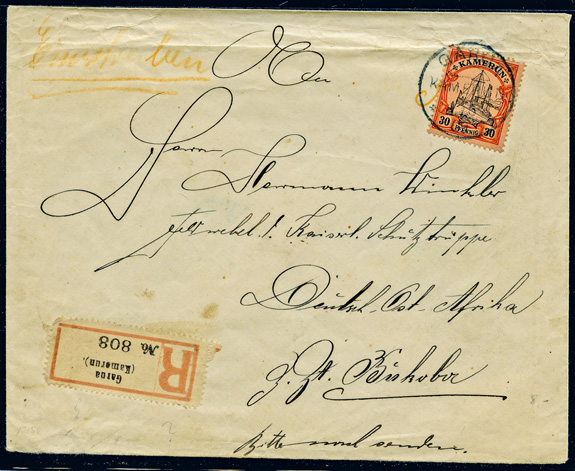 Einschreiben
An
GARUA
KAMERUN
30 PFENNIG 30
Herrn Hermann Winkler
Feldwebel d. Kaiserl. Schutztruppe
Deutsch-Ost-Afrika
z. Zt. Bukoba
Bitte nachsenden.
R
Garua
(Kamerun).
No. 808